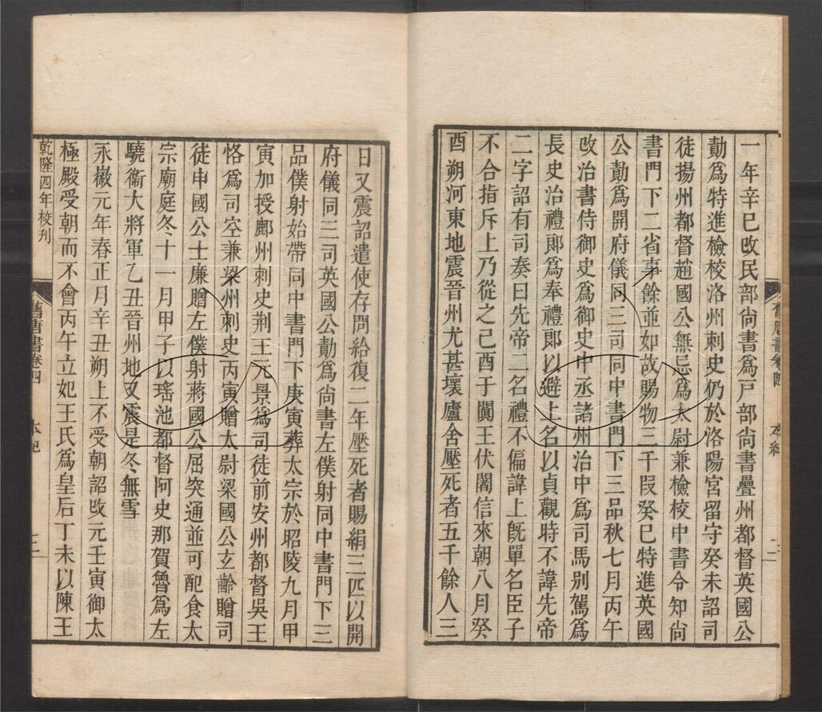 一年辛巳改民部尙書爲戸部尙書疊州都督英國公
勣爲特進檢校洛州刺史仍於洛陽宮留守癸未詔司
徒揚州都督趙國公無忌爲太尉兼檢校中書令知尙
書門下二省事餘並如故賜物三千段癸巳特進英國
公勣爲開府儀同三司同中書門下三品秋七月丙午
改治書侍御史爲御史中丞諸州治中爲司馬別駕爲
長史治禮郞爲奉禮郞以避上名以貞觀時不諱先帝
二字詔有司奏曰先帝二名禮不偏諱上旣單名臣子
不合指斥上乃從之己酉于闐王伏闍信來朝八月癸
酉朔河東地震晉州尤甚壞廬舍壓死者五千餘人三
舊唐書卷四 本紀 二
日又震詔遣使存問給復二年壓死者賜絹三匹以開
府儀同三司英國公勣爲尙書左僕射同中書門下三
品僕射始帶同中書門下庚寅葬太宗於昭陵九月甲
寅加授鄜州刺史荆王元景爲司徒前安州都督吳王
恪爲司空兼梁州刺史丙寅贈太尉梁國公玄齡贈司
徒申國公士廉贈左僕射蔣國公屈突通並可配食太
宗廟庭冬十一月甲子以瑤池都督阿史那賀魯爲左
驍衞大將軍乙丑晉州地又震是冬無雪
永徽元年春正月辛丑朔上不受朝詔改元壬寅御太
極殿受朝而不會丙午立妃王氏爲皇后丁未以陳王
乾隆四年校刊 舊唐書卷四 本紀